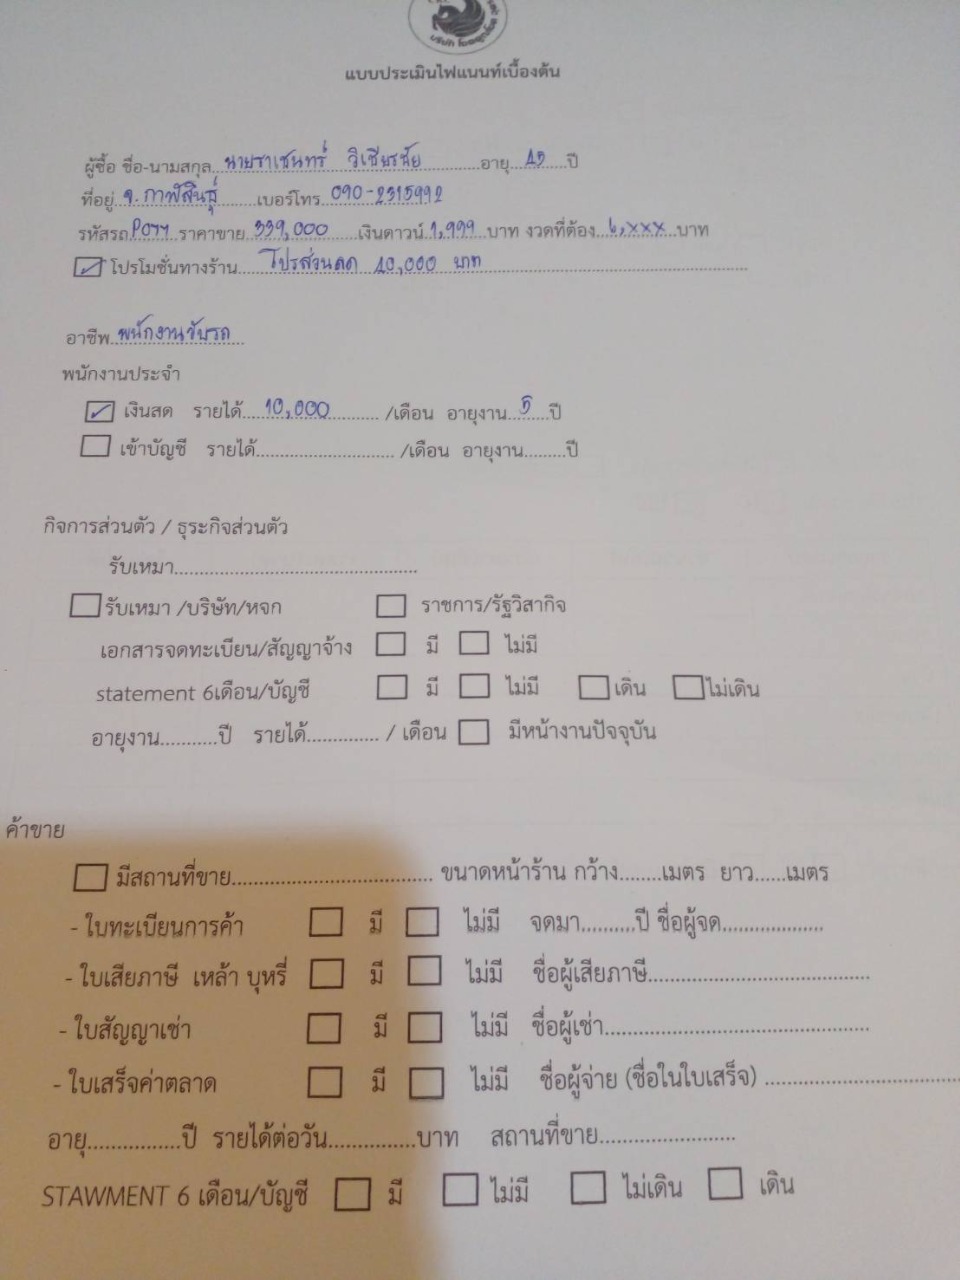 แบบประเมินไฟแนนท์เบื้องต้น
ผู้ซื้อ ชื่อ-นามสกุล..นายราเชนทร์ วิเชียรชัย..........อายุ.......ปี
ที่อยู่ จ.กาฬสินธุ์........เบอร์โทร 090-2315992
รหัสรถ.......ราคาขาย 339,000......เงินดาวน์ 1,999 บาท งวดที่ต้อง..6,xxx..บาท
โปรโมชั่นทางร้าน....โปรส่วนลด 10,000 บาท..........
อาชีพ..พนักงานขับรถ..
พนักงานประจำ
เงินสด รายได้....10,000.......... /เดือน อายุงาน..5....ปี
เข้าบัญชี รายได้............................. /เดือน อายุงาน.........ปี
กิจการส่วนตัว / ธุระกิจส่วนตัว
รับเหมา....................................................
รับเหมา /บริษัท/หจก ราชการ/รัฐวิสากิจ
เอกสารจดทะเบียน/สัญญาจ้าง มี ไม่มี
statement 6เดือน/บัญชี มี ไม่มี เดิน ไม่เดิน
อายุงาน...........ปี รายได้.............. / เดือน มีหน้างานปัจจุบัน
ค้าขาย
มีสถานที่ขาย.................................. ขนาดหน้าร้าน กว้าง........เมตร ยาว......เมตร
- ใบทะเบียนการค้า มี ไม่มี จดมา..........ปี ชื่อผู้จด...................
- ใบเสียภาษี เหล้า บุหรี่ มี ไม่มี ชื่อผู้เสียภาษี.........................................
- ใบสัญญาเช่า มี ไม่มี ชื่อผู้เช่า.................................................
- ใบเสร็จค่าตลาด มี ไม่มี ชื่อผู้จ่าย (ชื่อในใบเสร็จ) ....................................
อายุ................ปี รายได้ต่อวัน...............บาท สถานที่ขาย.........................
STAWMENT 6 เดือน/บัญชี มี ไม่มี ไม่เดิน เดิน